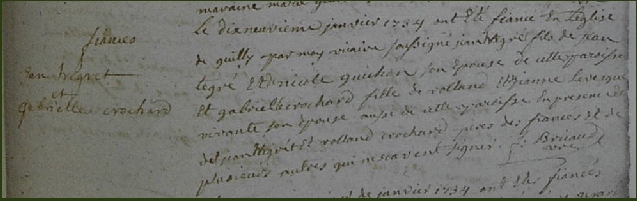 fiances
Jan tregret
et
Gabrielle crochard
maraine marie
Le dixneuvieme janvier 1734 ont Eté fiancé En leglise
de guilly par moy vicaire soussigné jan tregré fils de jean
tegré Et Nicole guichon son Epouse de cette paroisse
Et gabrielle crochard fille de rolland Et janne Levesque
vivante son Epouse aussi de cette paroisse En presence
de jean tregré Et rolland crochard peres des fiancés Et de
plusieurs autres qui ne scavent signer. Briand
de janvier 1734 ont Eté fiancés